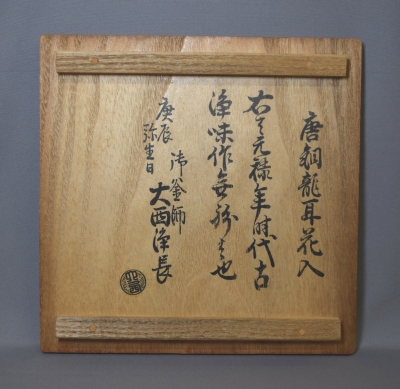 唐銅龍耳花入
右ハ元禄年時代古
浄味作無紛者也
庚辰
弥生日
御釜師
大西浄長